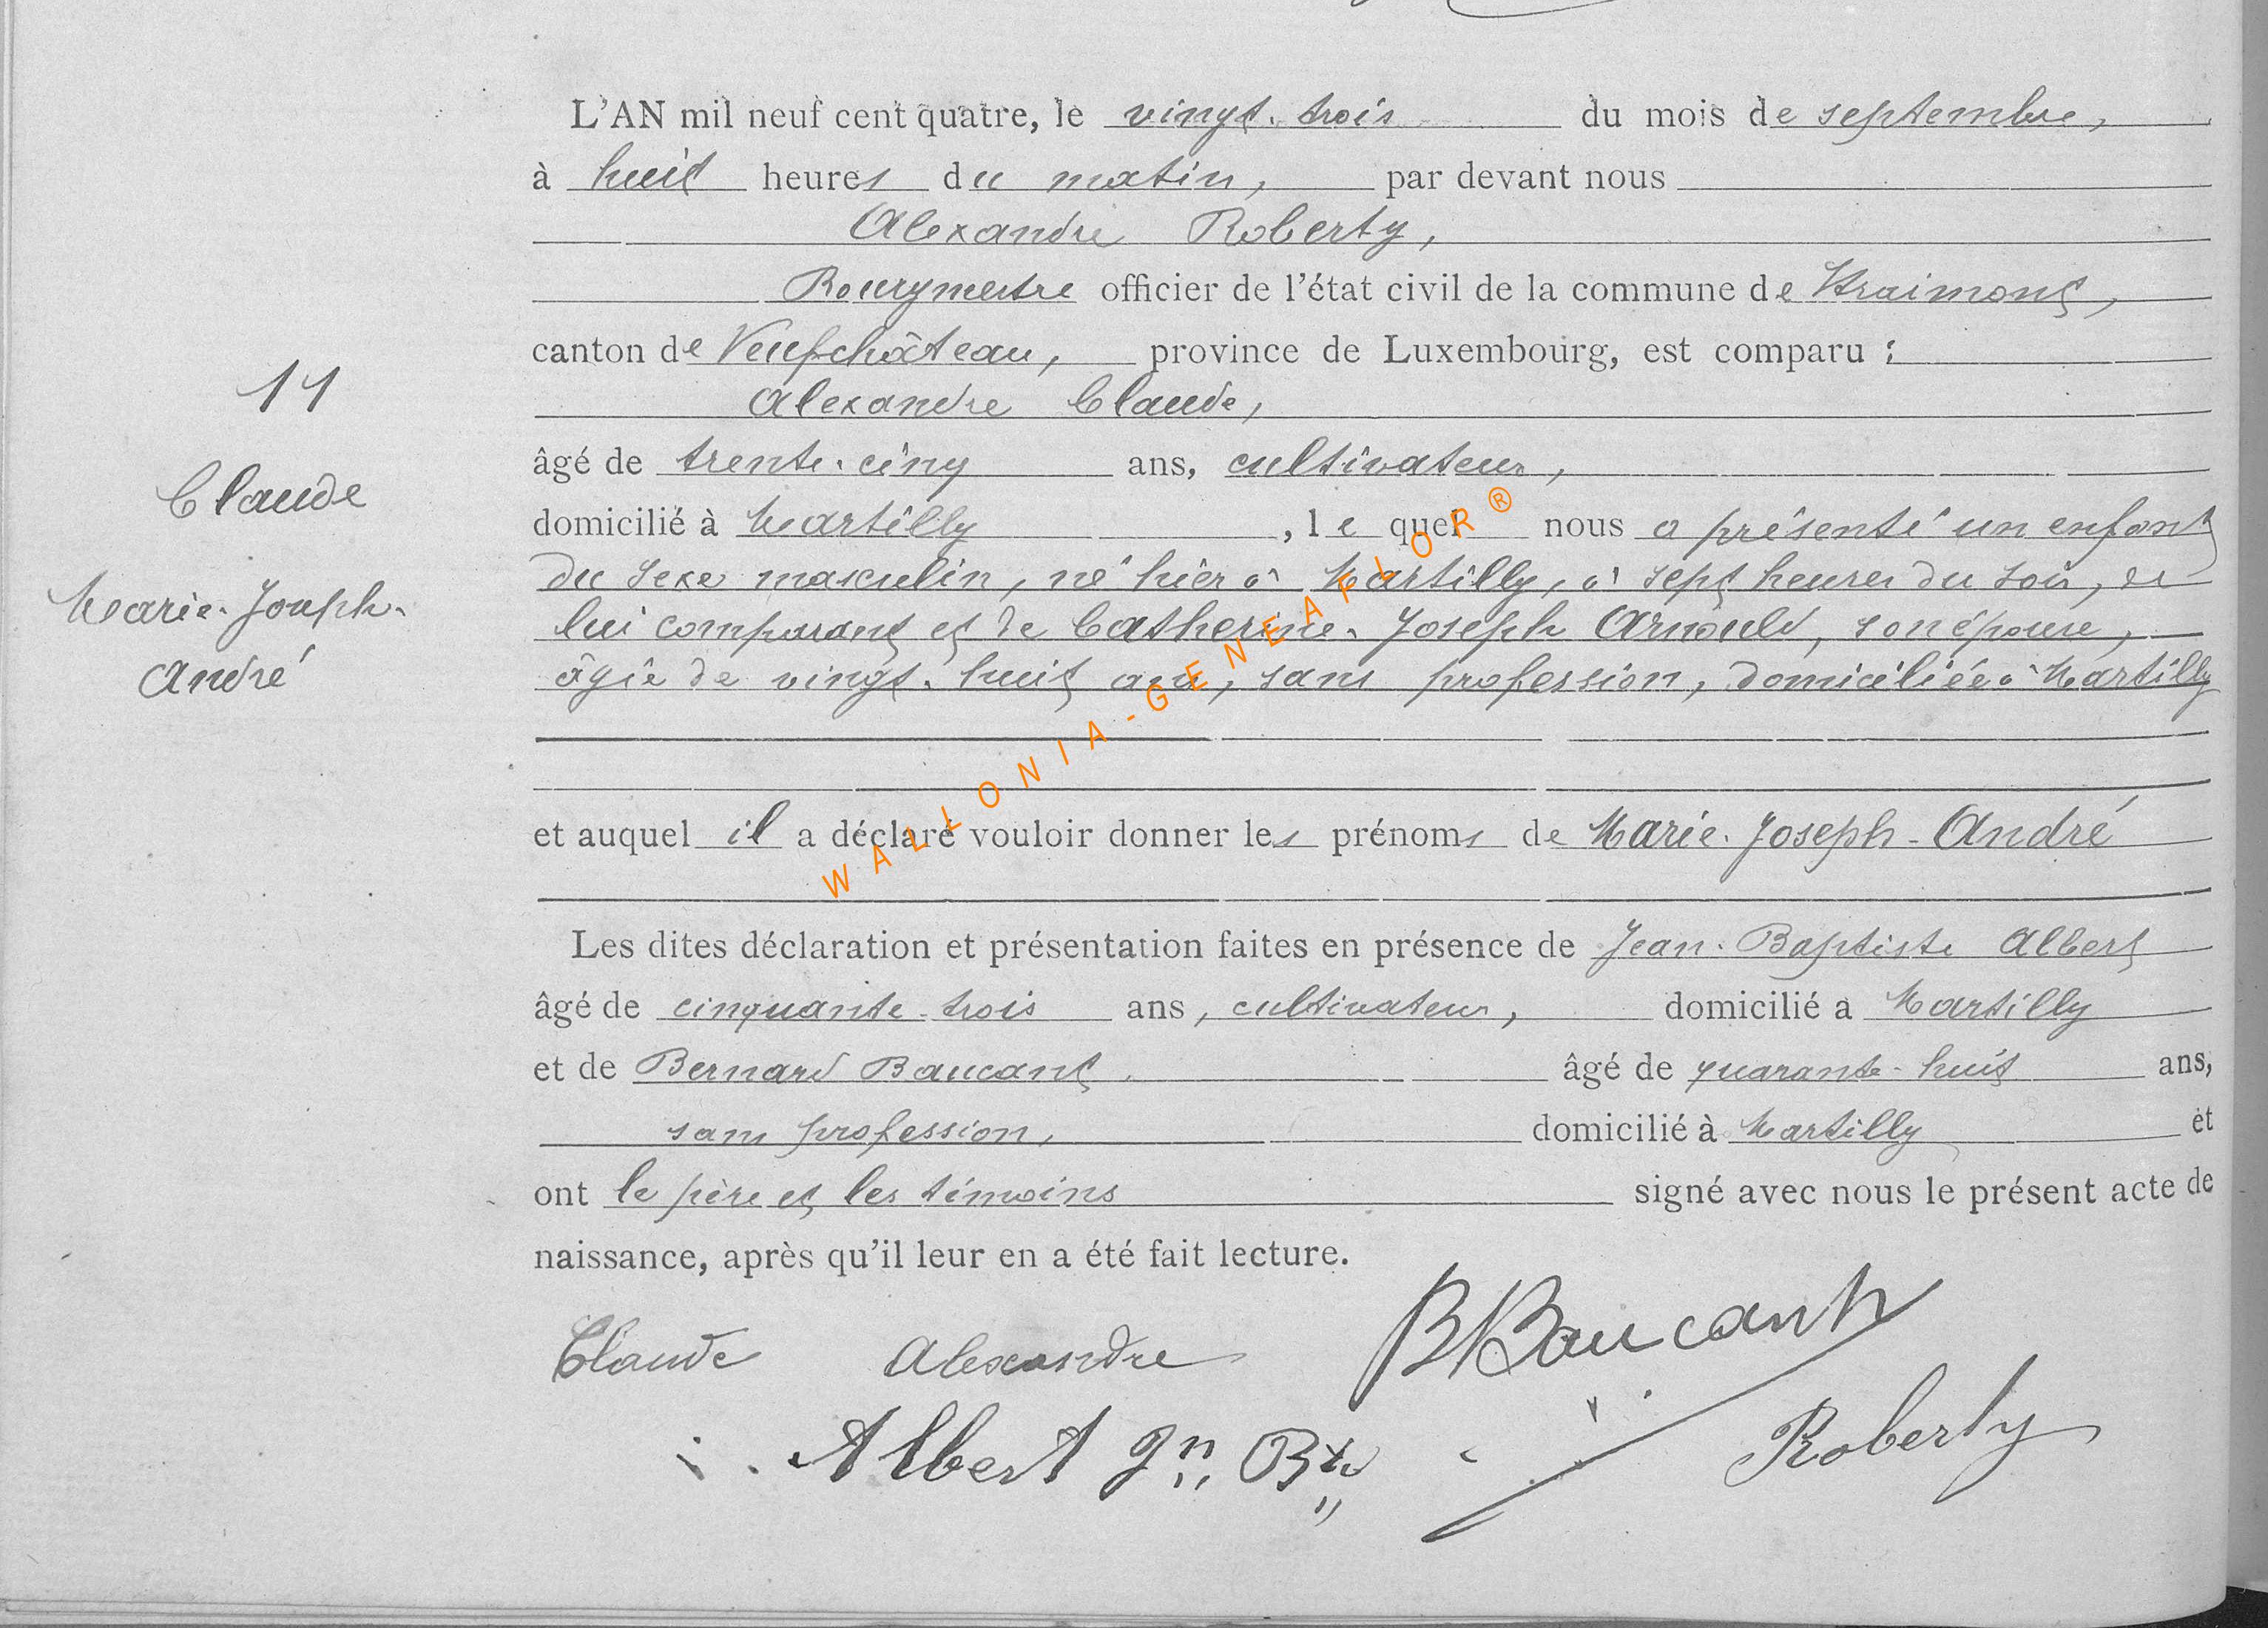 L'AN mil neuf cent quatre, le vingt-trois du mois de septembre,
à huit heures du matin, par devant nous
Alexandre Roberty,
Bourgmestre officier de l'état civil de la commune de Straimont,
canton de Neufchâteau, province de Luxembourg, est comparu :
Alexandre Claude,
âgé de trente-cinq ans, cultivateur,
domicilié à Martilly, lequel nous a présenté un enfant
du sexe masculin, né hier à Martilly, à sept heures du soir, de
lui comparant et de Catherine-Joseph Arnould, son épouse,
âgée de vingt-huit ans, sans profession, domiciliée à Martilly
et auquel il a déclaré vouloir donner les prénoms de Marie-Joseph-André
Les dites déclaration et présentation faites en présence de Jean-Baptiste Albert
âgé de cinquante-trois ans, cultivateur, domicilié à Martilly
et de Bernard Baucant âgé de quarante-huit ans,
sans profession, domicilié à Martilly et
ont le père et les témoins signé avec nous le présent acte de
naissance, après qu'il leur en a été fait lecture.
Claude Alexandre B Baucant
Albert Jn Bte Roberty
11
Claude
Marie-Joseph-
André
WALLONIA-GENEAFLOR®